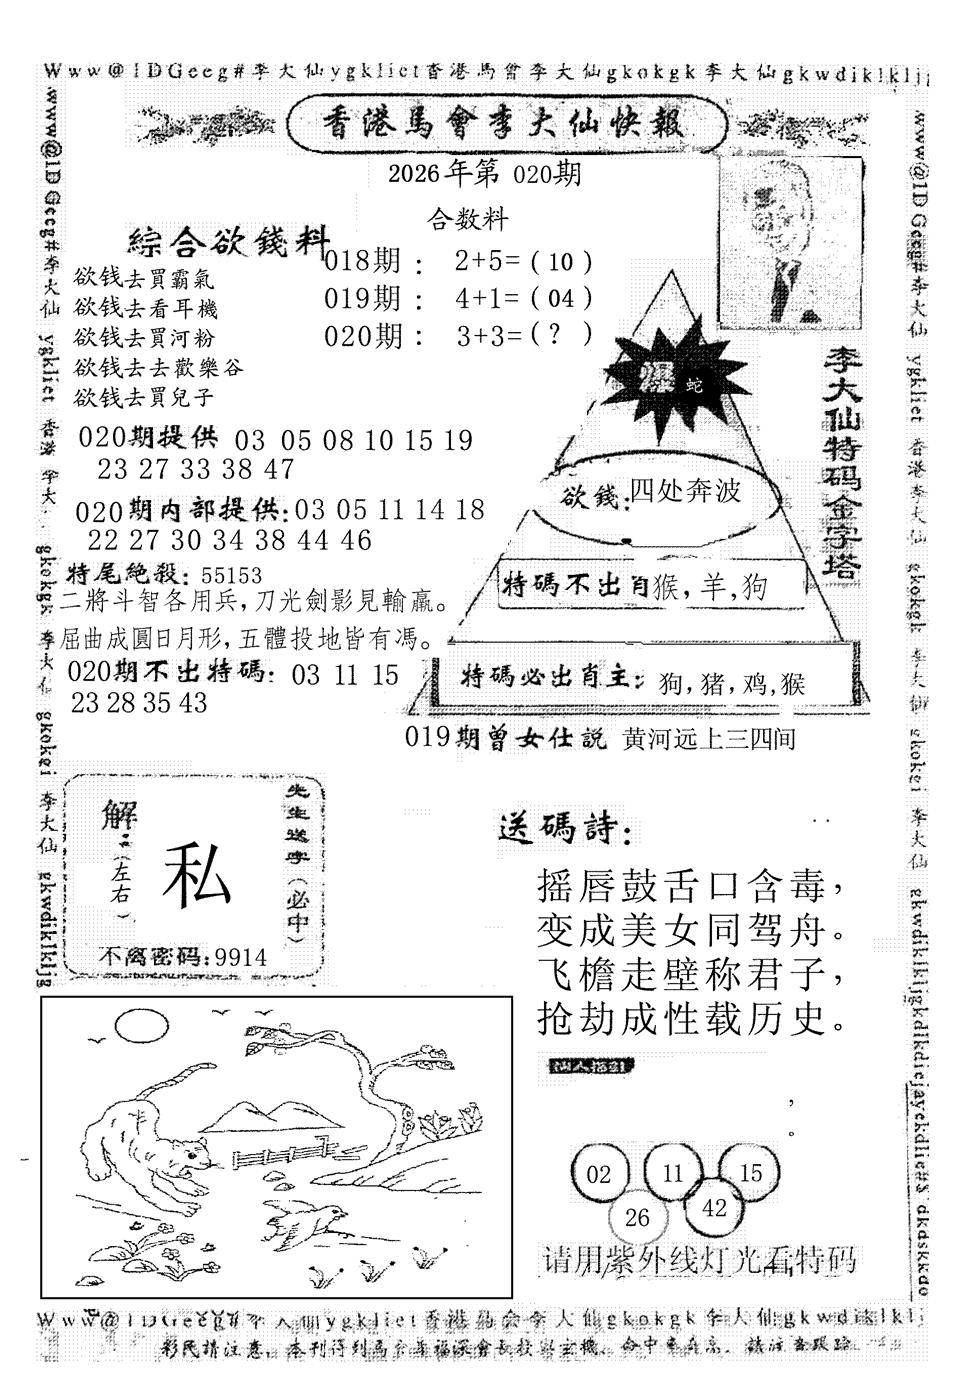 Www@1DGeeg#李大仙ygkliet香港馬會李大仙gkokgk李大仙gkwdiklkljg
香港馬會李大仙快報
2026年第 020期
合数料
綜合欲錢料
018期： 2+5=( 10 )
019期： 4+1=( 04 )
020期： 3+3=( ? )
欲钱去買霸氣
欲钱去看耳機
欲钱去買河粉
欲钱去去歡樂谷
欲钱去買兒子
020期提供 03 05 08 10 15 19
23 27 33 38 47
020期内部提供:03 05 11 14 18
22 27 30 34 38 44 46
特尾絶殺: 55153
二將斗智各用兵，刀光劍影見輸贏。
屈曲成圓日月形，五體投地皆有馮。
020期不出特碼: 03 11 15
23 28 35 43
李大仙特码金字塔
爆 蛇
欲錢:四处奔波
特碼不出肖猴，羊,狗
特碼必出肖主: 狗，猪，鸡,猴
019期曾女仕説 黄河远上三四间
解:(左右)
私
先生送字(必中)
不离密码:9914
送碼詩:
摇唇鼓舌口含毒，
变成美女同驾舟。
飞檐走壁称君子，
抢劫成性载历史。
，
。
02 11 15
26 42
请用紫外线灯光看特码
www@1DGeeg#李大仙 ygkliet 香港 李大 gkokgk 李大仙 gkokei 李大仙 gkwdiklkljg
www@1DGeeg#李大仙 ygkliet 香港李大仙 gkokgk 李大仙 gkokei 李大仙 gkwdiklkljgkdlkdiejayekdlie#$ dkdskkdo
Www@1DGeeg#李大仙ygkliet香港馬会李大仙gkokgk李大仙gkwdiklklj
彩民請注意，本刊得到馬会